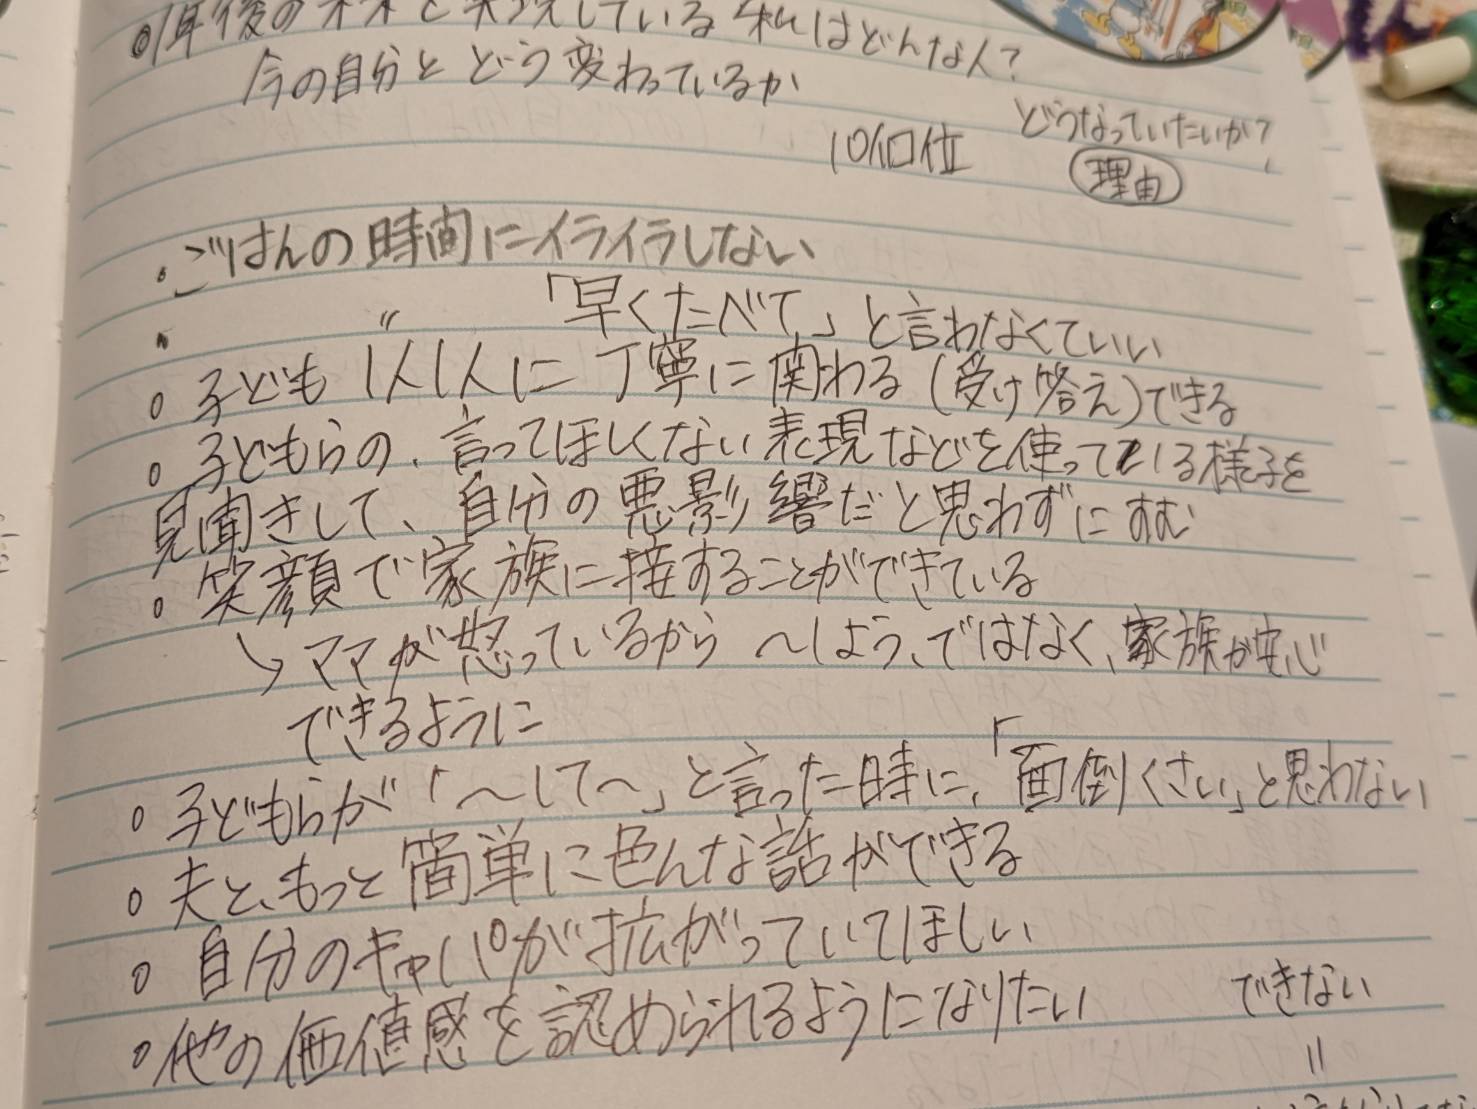 ◎1年後の
している私はどんな人?
今の自分とどう変わっているか
どうなっていたいか?
10個位
理由
・ごはんの時間にイライラしない
・ 〃 「早くたべて」と言わなくていい
○子ども1人1人に丁寧に関わる(受け答え)できる
○子どもらの、言ってほしくない表現などを使っている様子を
見聞きして、自分の悪影響だと思わずにすむ
○笑顔で家族に接することができている
↳ママが怒っているから〜しよう、ではなく、家族が安心
できるように
○子どもらが「〜して〜」と言った時に、「面倒くさい」と思わない
○夫と、もっと簡単に色んな話ができる
○自分のキャパが拡がっていてほしい
○他の価値感を認められるようになりたい
できない
〃